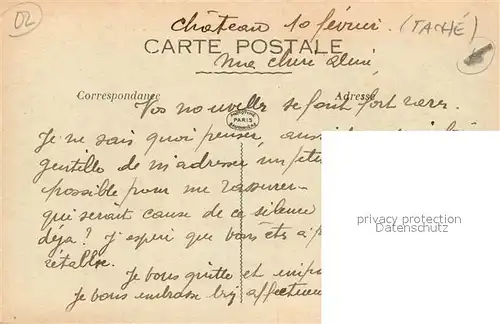 02
Château 10 février. (TACHÉ)
CARTE POSTALE
ma chère aimé
Correspondance Adresse
Vos nouvelles se font fort rares.
PARIS
Je ne sais quoi penser, aussi
gentille de m'adresser un petit
possible pour me rassurer
qui serait cause de ce silence
déjà? J'espère que vous êtes
rétablie.
Je vous quitte et
Je vous embrasse bien affectueu
privacy protection
Datenschutz